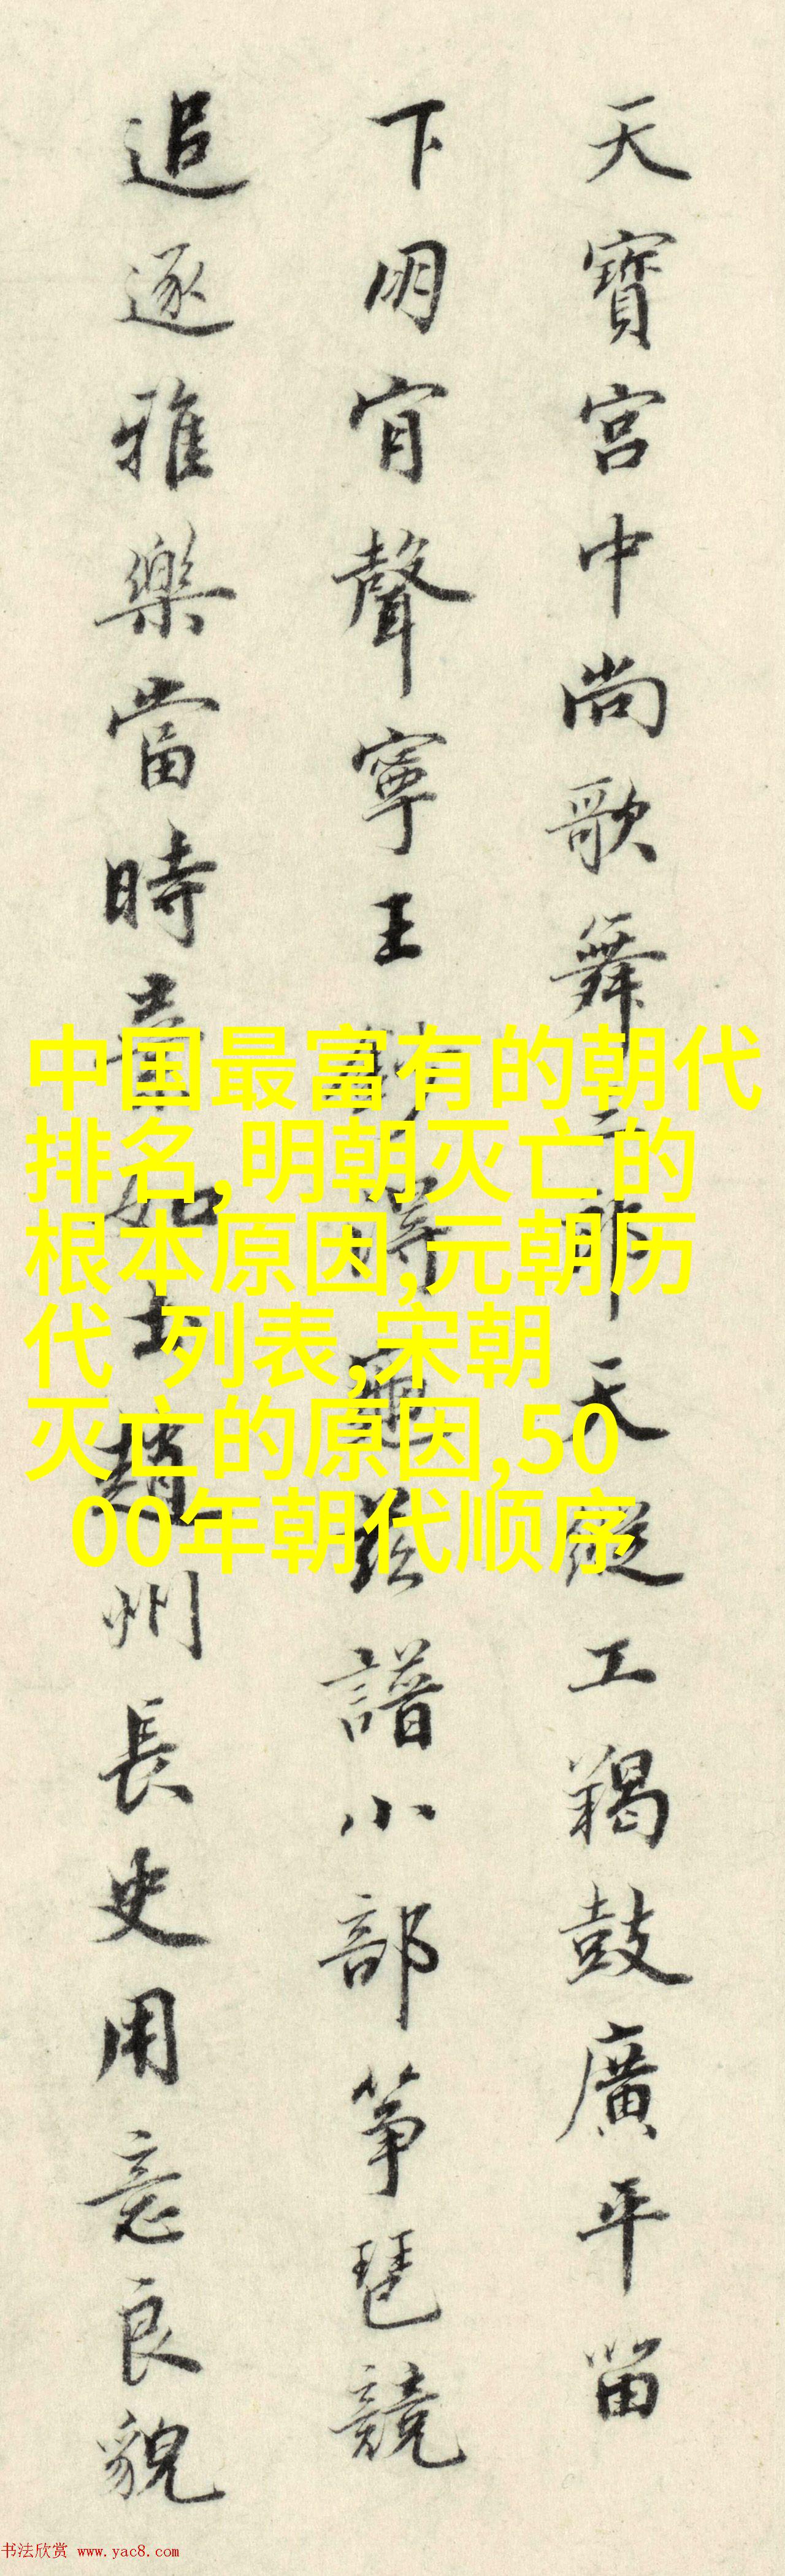 天寶宮中尚歌舞郎天縱工羯鼓廣平留
下朋肎聲寧王得龜茲譜小部箏琶競
追逐雅樂當時如土趙州長史用意良貌
中国最富有的朝代
排名,明朝灭亡的
根本原因,元朝历
代 列表,宋朝
灭亡的原因,50
00年朝代顺序
书法欣赏 www.yac8.com